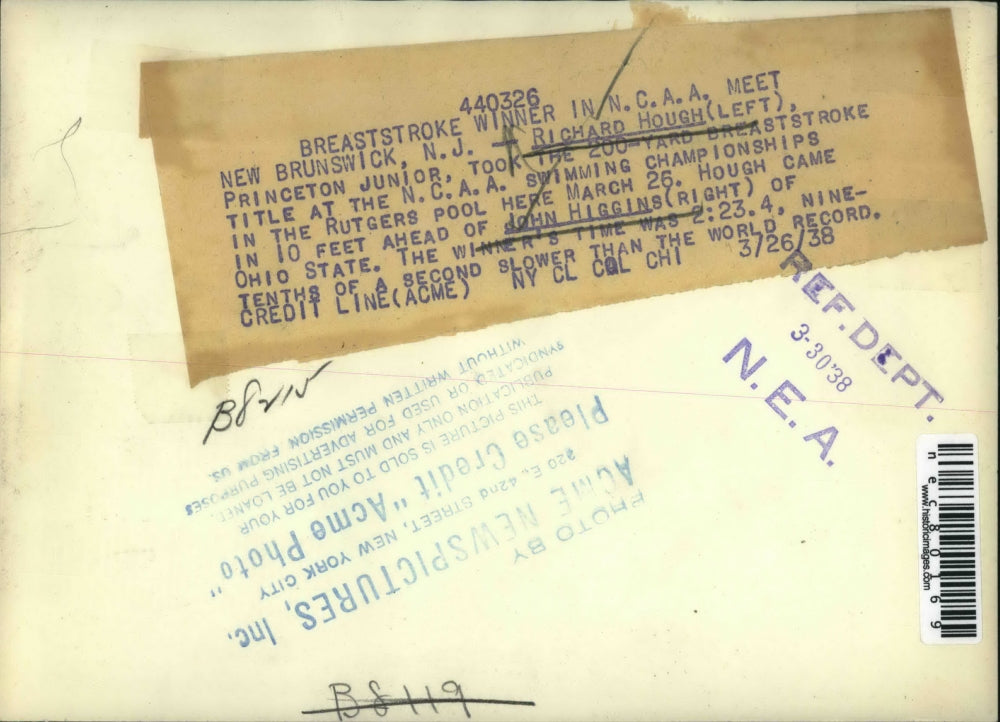 440326
BREASTSTROKE WINNER IN N.C.A.A. MEET
NEW BRUNSWICK, N.J. — RICHARD HOUGH(LEFT),
PRINCETON JUNIOR, TOOK THE 200-YARD BREASTSTROKE
TITLE AT THE N.C.A.A. SWIMMING CHAMPIONSHIPS
IN THE RUTGERS POOL HERE MARCH 26. HOUGH CAME
IN 10 FEET AHEAD OF JOHN HIGGINS(RIGHT) OF
OHIO STATE. THE WINNER'S TIME WAS 2:23.4, NINE-
TENTHS OF A SECOND SLOWER THAN THE WORLD RECORD.
CREDIT LINE(ACME) NY CL COL CHI 3/26/38
REF. DEPT.
3-30'38
N. E. A.
PHOTO BY
ACME NEWSPICTURES, Inc.
220 E. 42nd STREET, NEW YORK CITY
Please Credit "Acme Photo"
THIS PICTURE IS SOLD TO YOU FOR YOUR
PUBLICATION ONLY AND MUST NOT BE LOANED,
SYNDICATED OR USED FOR ADVERTISING PURPOSES
WITHOUT WRITTEN PERMISSION FROM US.
nec80169
www.historicimages.com
B8119